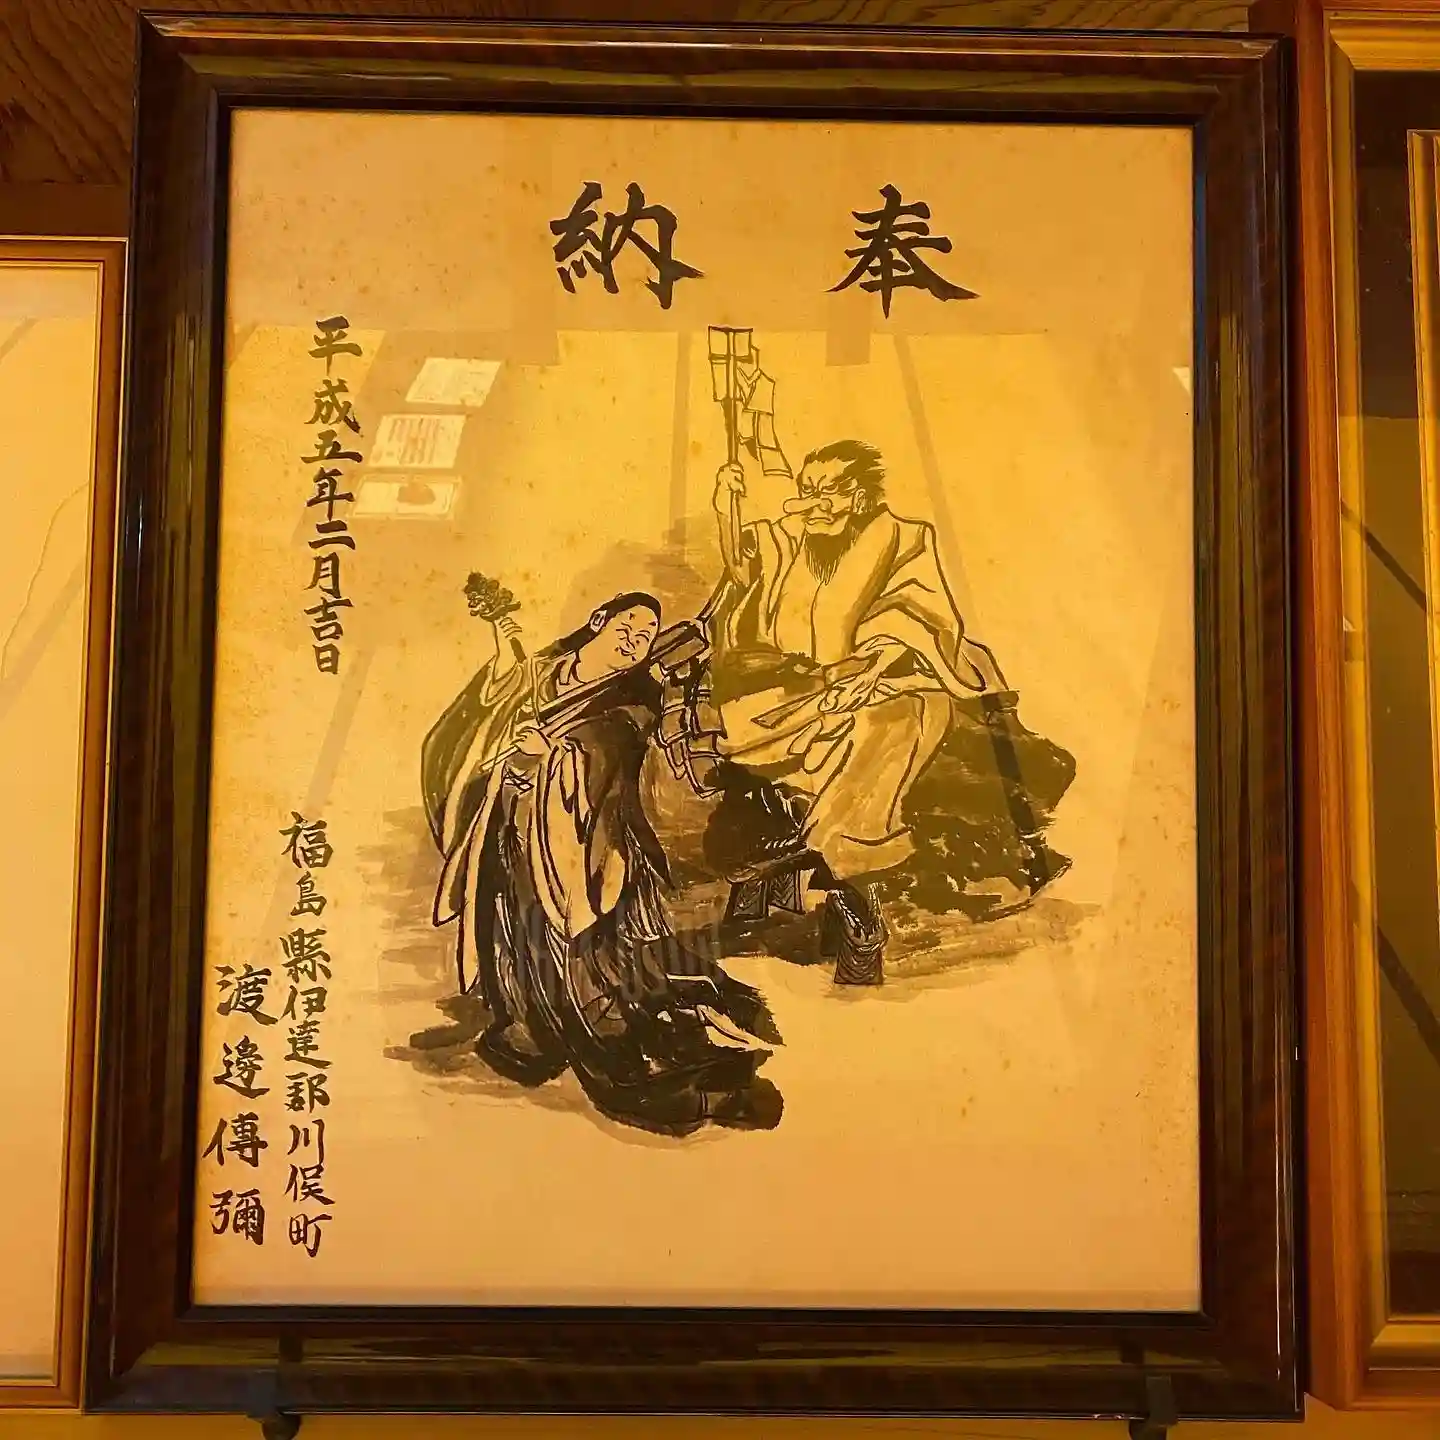 奉納
平成五年二月吉日
福島縣伊達郡川俣町
渡邊傳彌